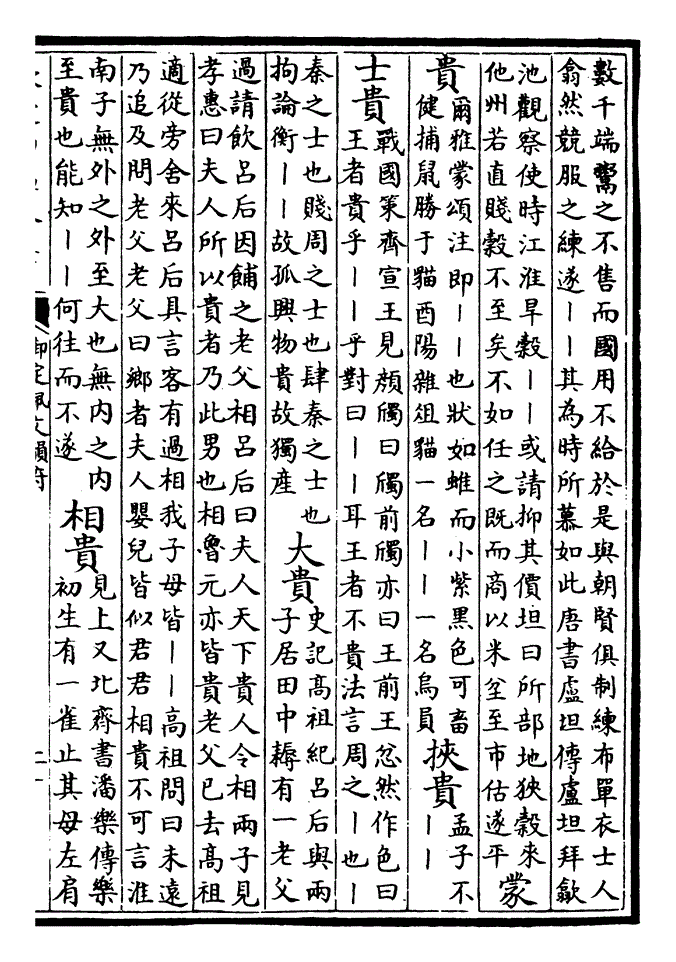 數千端鬻之不售而國用不給於是與朝賢俱制練布單衣士人
翕然競服之練遂丨丨其為時所慕如此唐書盧坦傳盧坦拜歙
池觀察使時江淮旱穀丨丨或請抑其價坦曰所部地狹穀來
他州若直賤穀不至矣不如任之既而商以米坌至市估遂平
蒙
貴
爾雅蒙頌注即丨丨也狀如蜼而小紫黑色可畜
健捕鼠勝于貓酉陽雜俎貓一名丨丨一名烏員
挾貴
孟子不
丨丨
士貴
戰國策齊宣王見顔斶曰斶前斶亦曰王前王忿然作色曰
王者貴乎丨丨乎對曰丨丨耳王者不貴法言周之丨也丨
秦之士也賤周之士也肆秦之士也
拘論衡丨丨故孤興物貴故獨產
大貴
史記高祖紀呂后與兩
子居田中耨有一老父
過請飲呂后因餔之老父相呂后曰夫人天下貴人令相兩子見
孝惠曰夫人所以貴者乃此男也相魯元亦皆貴老父已去高祖
適從旁舍來呂后具言客有過相我子母皆丨丨高祖問曰未遠
乃追及問老父老父曰鄉者夫人嬰兒皆似君君相貴不可言淮
南子無外之外至大也無内之内
至貴也能知丨丨何往而不遂
相貴
見上又北齊書潘樂傳樂
初生有一雀止其母左肩
御定佩文韻府